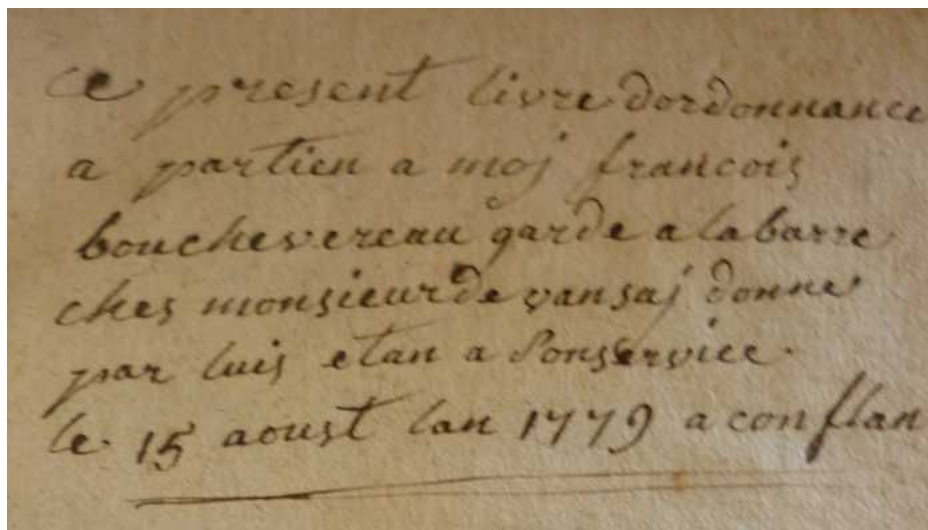 ce present livre dordonnance
a partien a moj francois
bouchevereau garde a labarre
ches monsieur de vansaj donne
par luis etan a Sonservice
le 15 aoust lan 1779 a conflan